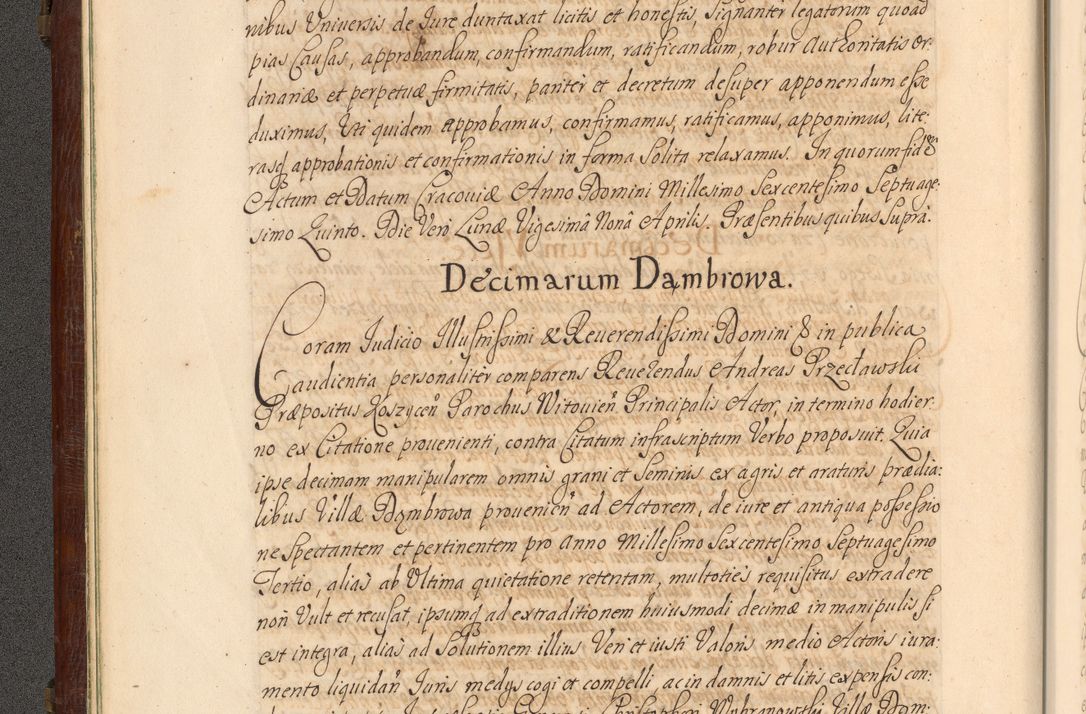 nibus Universis de Jure duntaxat licitis et honestis, signanter legatorum quoad
pias Causas, approbandum, confirmandum, ratificandum, robur Authoritatis Or:
dinariæ et perpetuæ firmitatis, paritèr et decretum desuper apponendum esse
duximus, Uti quidem approbamus, confirmamus, ratificamus, apponimus, lite:
rasq approbationis et confirmationis in forma solita relaxamus. In quorum fidem &
Actum et Datum Cracoviæ Anno Domini Millesimo Sexcentesimo Septuage:
simo Quinto. Die Veri Lunæ Vigesimâ Nonâ Aprilis. Præsentibus quibus suprà.
Decimarum Dąmbrowa.
Coram Judicio Illustrissimi & Reuerendissimi Domini & in publica
audientia personalitèr comparens Reuerendus Andreas Przecławski
Præpositus Koszyceñ Parochus Witouieñ Principalis Actor, in termino hodier:
no ex Citatione prouenienti, contra Citatum infrascriptum Verbo proposuit. Quia
ipse decimam manipularem omnis grani et seminis ex agris et araturis prædia:
libus Villæ Dąmbrowa prouenieñ ad Actorem, de iure et antiqua possessio
ne spectantem et pertinentem pro Anno Millesimo Sexcentesimo Septuagesimo
Tertio, alias ab Ultima quietatione retentam, multoties requisitus extradere
non Vult et recusat, ipsumq ad extraditionem huiusmodi decimæ in manipulis si
est integra, alias ad Solutionem illius Veri et iusti Valoris medio Actoris iura:
mento liquidañ Juris medys cogi et compelli ac in damnis et litis expensis con: